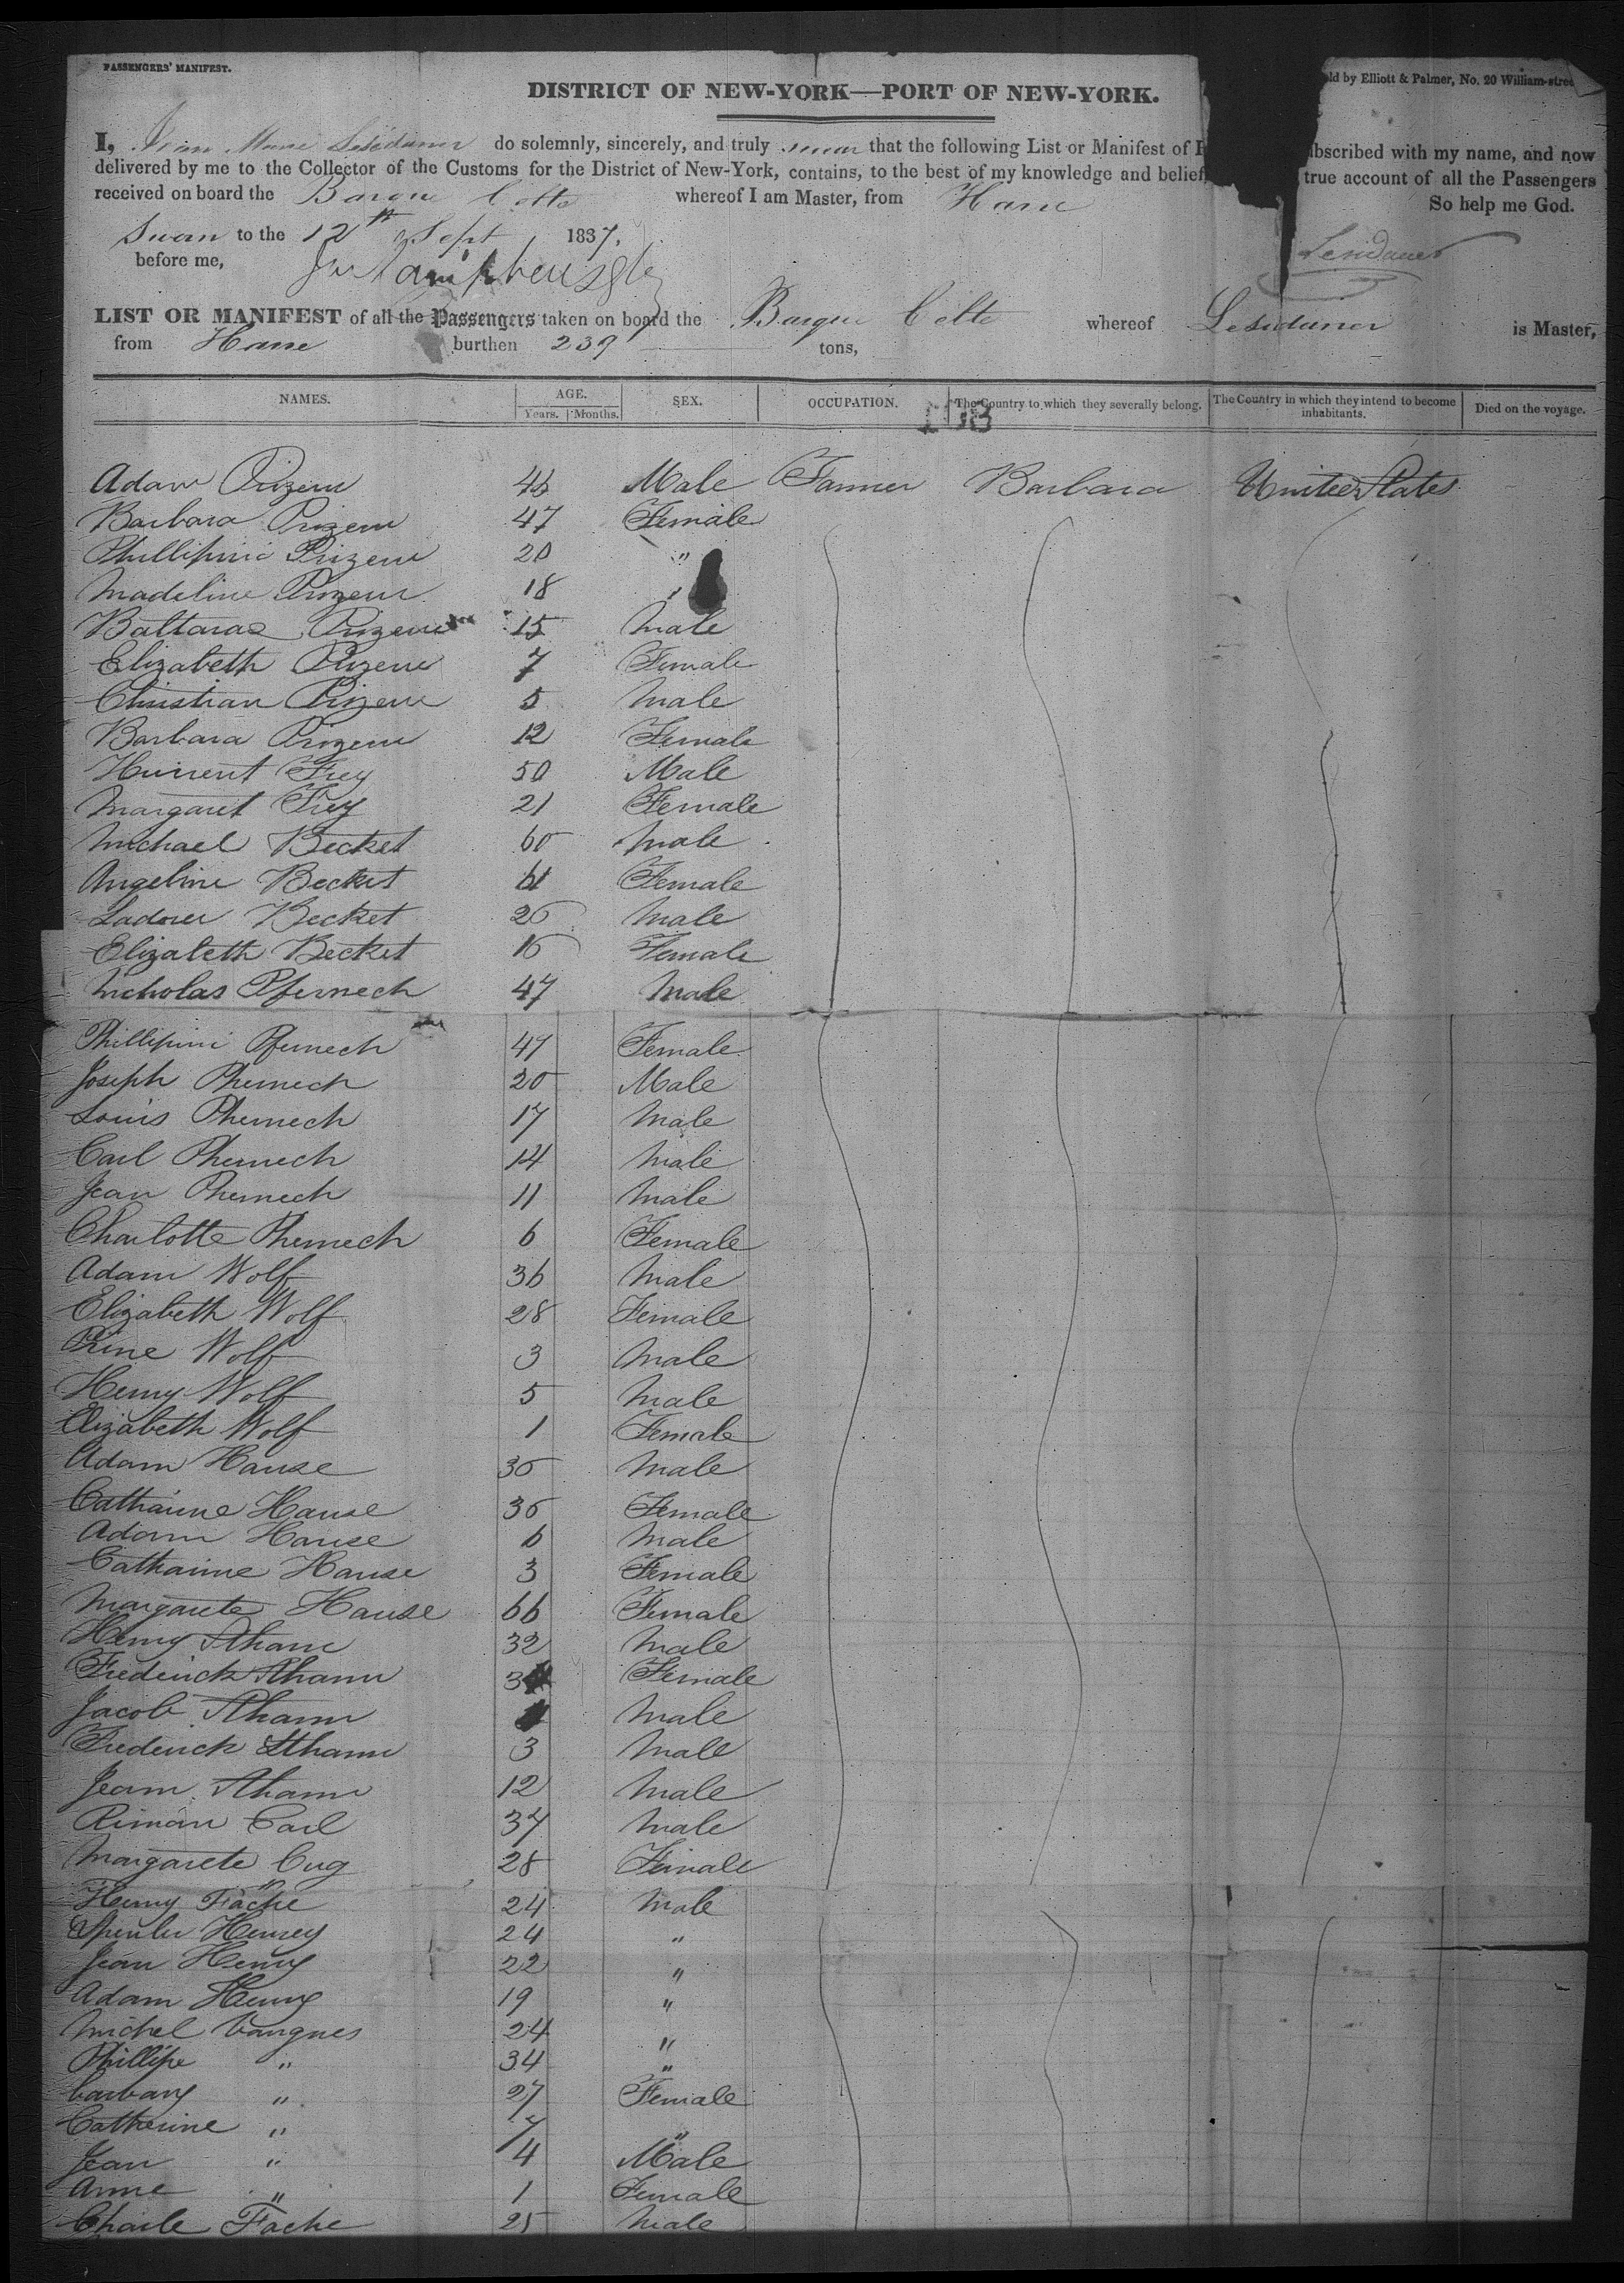 PASSENGERS' MANIFEST.
ld by Elliott & Palmer, No. 20 William-stree
DISTRICT OF NEW-YORK—PORT OF NEW-YORK.
I, Jean Marie Lesidaner do solemnly, sincerely, and truly swear that the following List or Manifest of P ubscribed with my name, and now
delivered by me to the Collector of the Customs for the District of New-York, contains, to the best of my knowledge and belief, true account of all the Passengers
received on board the Barque Celte whereof I am Master, from Havre So help me God.
Sworn to the 12th Sept 1837,
Lesidaner
before me,
LIST OR MANIFEST of all the Passengers taken on board the Barque Celte whereof Lesidaner is Master,
from Havre burthen 239 tons,
NAMES. AGE. Years. Months. SEX. OCCUPATION. The Country to which they severally belong. The Country in which they intend to become inhabitants. Died on the voyage.
108
Adam Prizem 45 Male Farmer Barbara United States
Barbara Prizem 47 Female
Phillipini Prizem 20 "
Madeline Prizem 18 "
Baltaras Prizem 15 Male
Elizabeth Prizem 7 Female
Christian Prizem 5 Male
Barbara Prizem 12 Female
Frey 50 Male
Margaret Frey 21 Female
Michael Becket 60 Male
Angeline Becket 61 Female
Becket 26 Male
Elizabeth Becket 16 Female
Nicholas Pfernech 47 Male
Phillipini Pfernech 47 Female
Joseph Phernech 20 Male
Louis Phernech 17 Male
Carl Phernech 14 Male
Jean Phernech 11 Male
Charlotte Phernech 6 Female
Adam Wolf 36 Male
Elizabeth Wolf 28 Female
Wolf 3 Male
Henry Wolf 5 Male
Elizabeth Wolf 1 Female
Adam Hause 36 Male
Catharine Hause 36 Female
Adam Hause 6 Male
Catharine Hause 3 Female
Margarete Hause 66 Female
Henry Athann 32 Male
Frederick Athann 3 Female
Jacob Athann Male
Frederick Athann 3 Male
Jeam Athann 12 Male
Riman Carl 37 Male
Margarete Cug 28 Female
Henry Fache 24 Male
Spenler Henrey 24 "
Jean Henry 22 "
Adam Henry 19 "
Michel Vangnes 24 "
Phillipe " 34 "
barbary " 27 Female
Catherine " 7 "
Jean " 4 Male
Anne " 1 Female
Charle Fache 25 Male